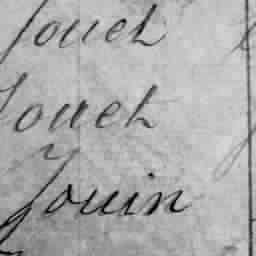 Jouet
Jouet
Jouin